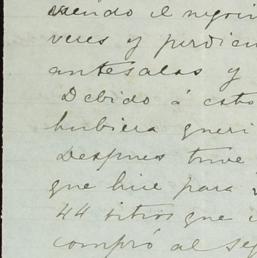 viendo el negoci
veces y perdien
antesalas y
Debido á esto
hubiera queri
Despues tuve
que hice para
44 sitios que
compró al se